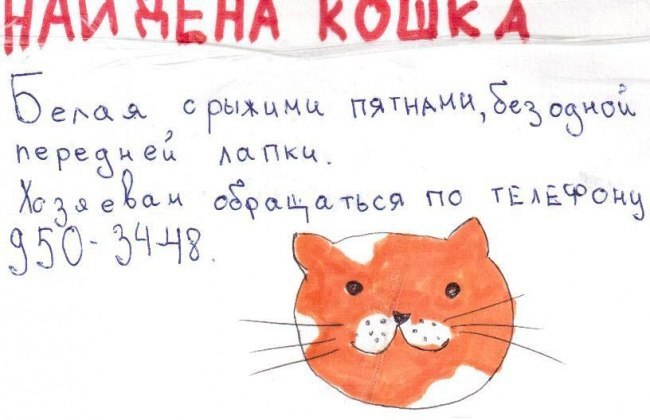 НАЙДЕНА КОШКА
Белая с рыжими пятнами, без одной
передней лапки.
Хозяевам обращаться по телефону
950-34-48.